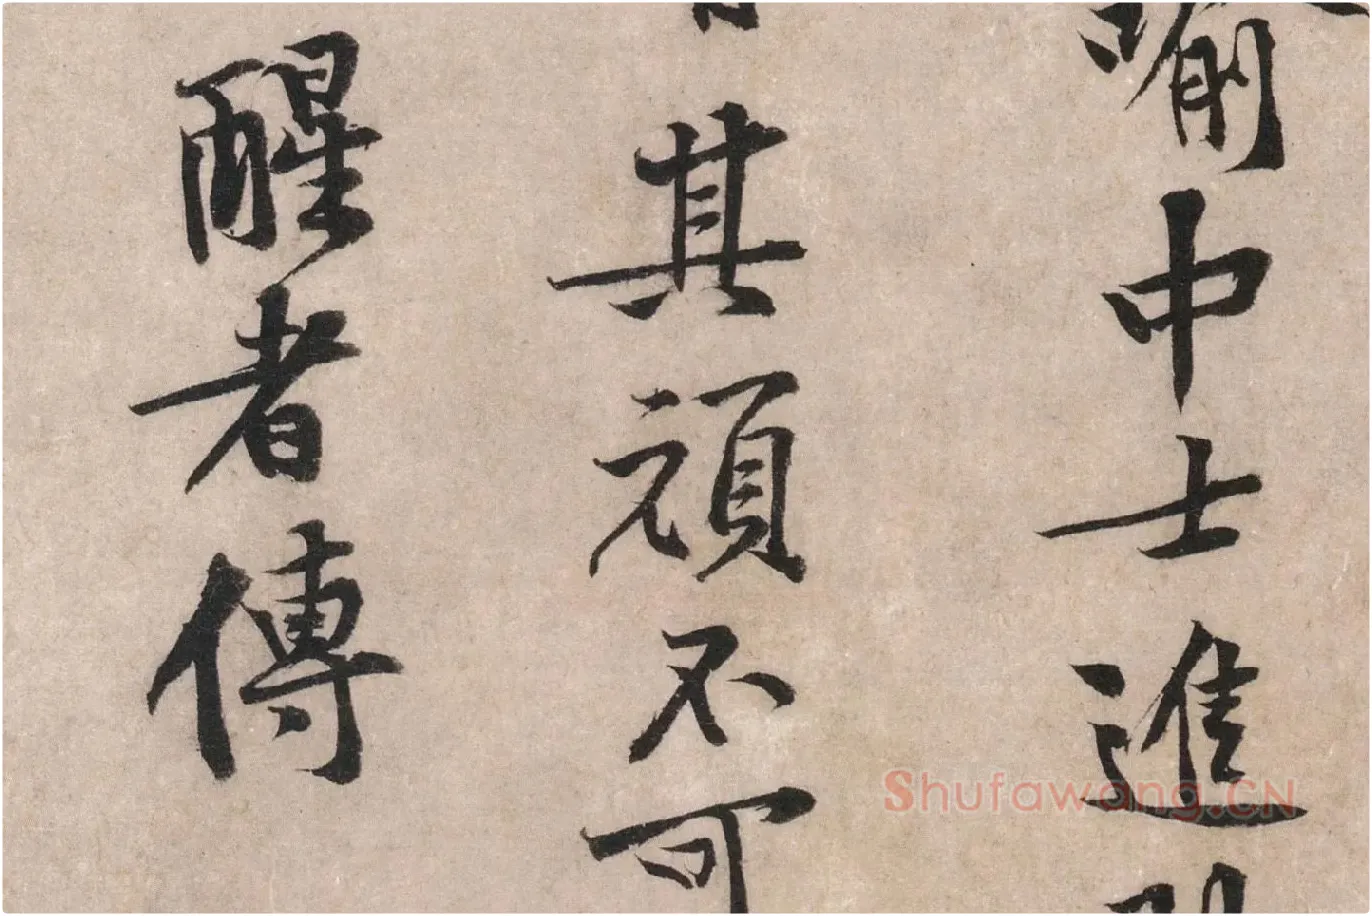 喻中士進
其頑不可
醒者傳
Shufawang.CN